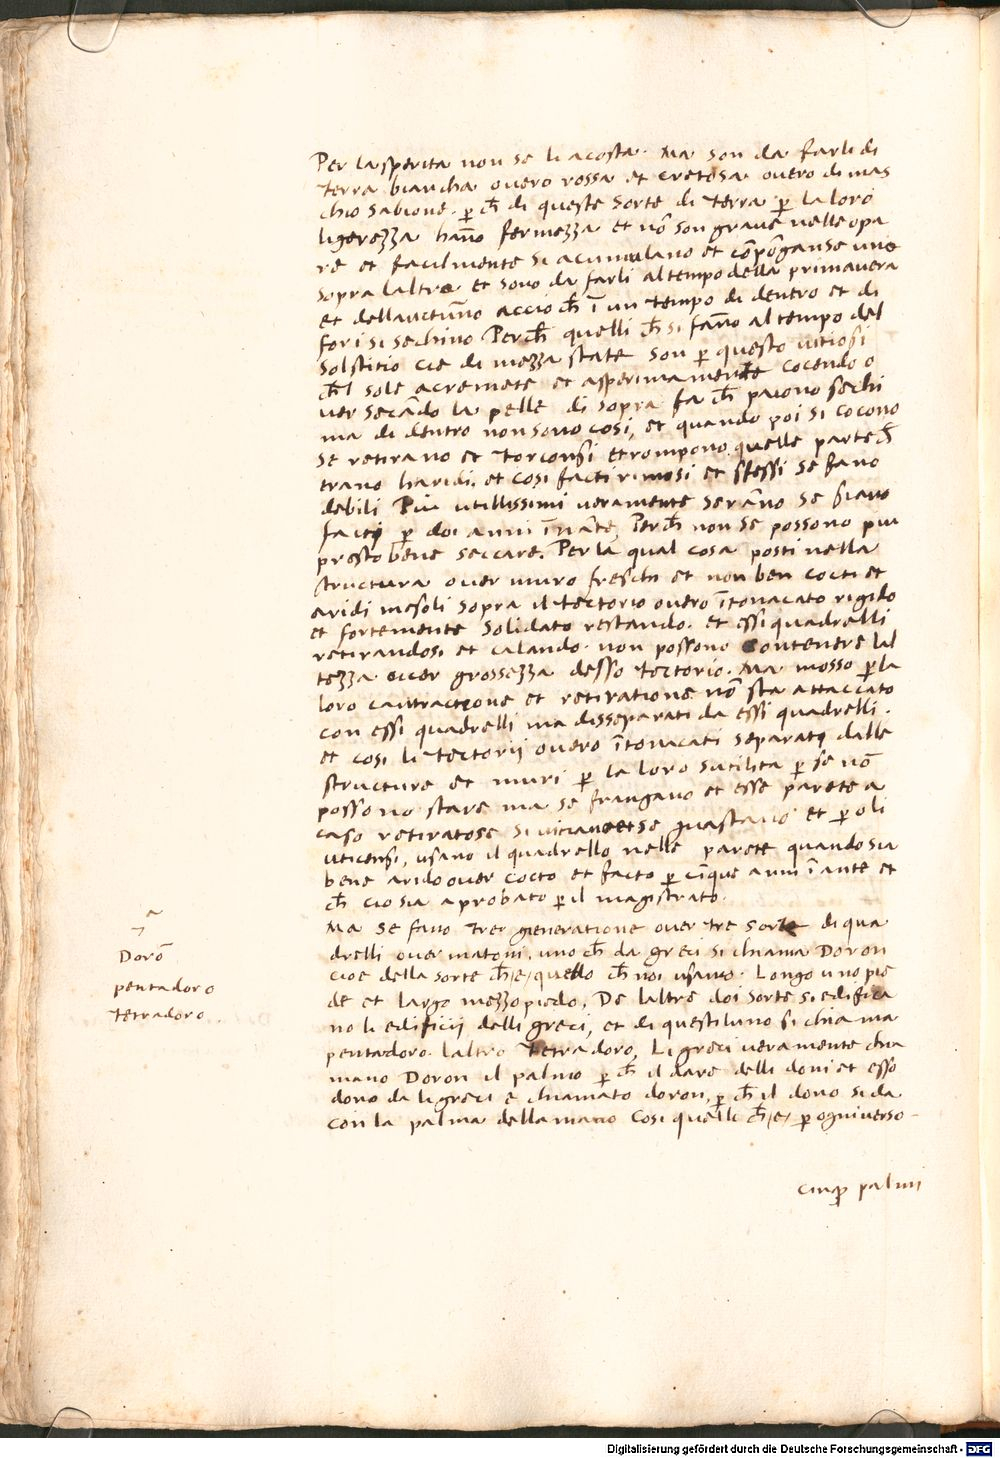 Per lasperita non se li acosta. Ma son da farli di
terra biancha overo rossa et cretosa overo di mas
chio sabione. p ch̄ di queste sorte di terra p la loro
ligerezza hāno fermezza et nō son grave nelle opa
re et facilmente si acumulano et cōpōnganse uno
sopra laltro et sono da farli al tempo della primavera
et dellauctūno accio ch̄ ī un tempo di dentro et di
fori si sechino Perch̄ quelli ch̄ si fāno al tempo del
solstitio cie di mezza state son p questo vitiosi
ch̄l sole acremēte et asperimamente cocendo o
ver secādo la pelle di sopra fa ch̄ paiono sechi
ma di dētro non sono cosi, et quando poi si cocono
se retirano et torconsi et rompono quelle parte ch̄
trano haridi. et cosi facti rimosi et fessi se fano
debili Piu utillissimi veramente serāno se siano
facti p doi anni īnāte, Perch̄ non se possono piu
presto bene seccare. Per la qual cosa posti nella
structura over muro freschi et non ben cocti et
aridi mesoli sopra il tectorio overo ītonacato rigido
et fortemente solidato restando. et essi quadrelli
retirandosi et calando. non possono contenere lal
tezza over grossezza desso tectorio. Ma mosso p la
loro contractione et retiratione nō sta attaccato
con essi quadrelli ma disseparati da essi quadrelli.
et cosi li tectorij overo ītonacati separati dalle
structure et muri p la loro sutilita p se nō
possono stare ma se frangano et esse parete a
caso retiratose si vitiano et se guastano et p o li
uticensi, usano il quadrello nelle parete quando sia
bene arido over cocto et facto p cīque anni īante et
ch̄ cio sia aprobato p il magistrato.
Ma se fano tre generatione over tre sorte di qua
drelli over matoni. uno ch̄ da greci si chiama Doron
cioe della sorte ch̄ e quello ch̄ noi usamo. Longo uno pie
de et largo mezzo piedo, De laltre doi sorte si edifica
no li edificij delli greci, et di questi luno si chiama
pentadoro. laltro Tetradoro, Li greci veramente chia
mano Doron il palmo p ch̄ il dare delli doni et esso
dono da li greci e chiamato doron, p ch̄ il dono si da
con la palma della mano Cosi quelli ch̄ e p ogniverso
Dorō
pentadoro
Tetradoro.
cinqꝫ palmi
Digitalisierung gefördert durch die Deutsche Forschungsgemeinschaft - DFG